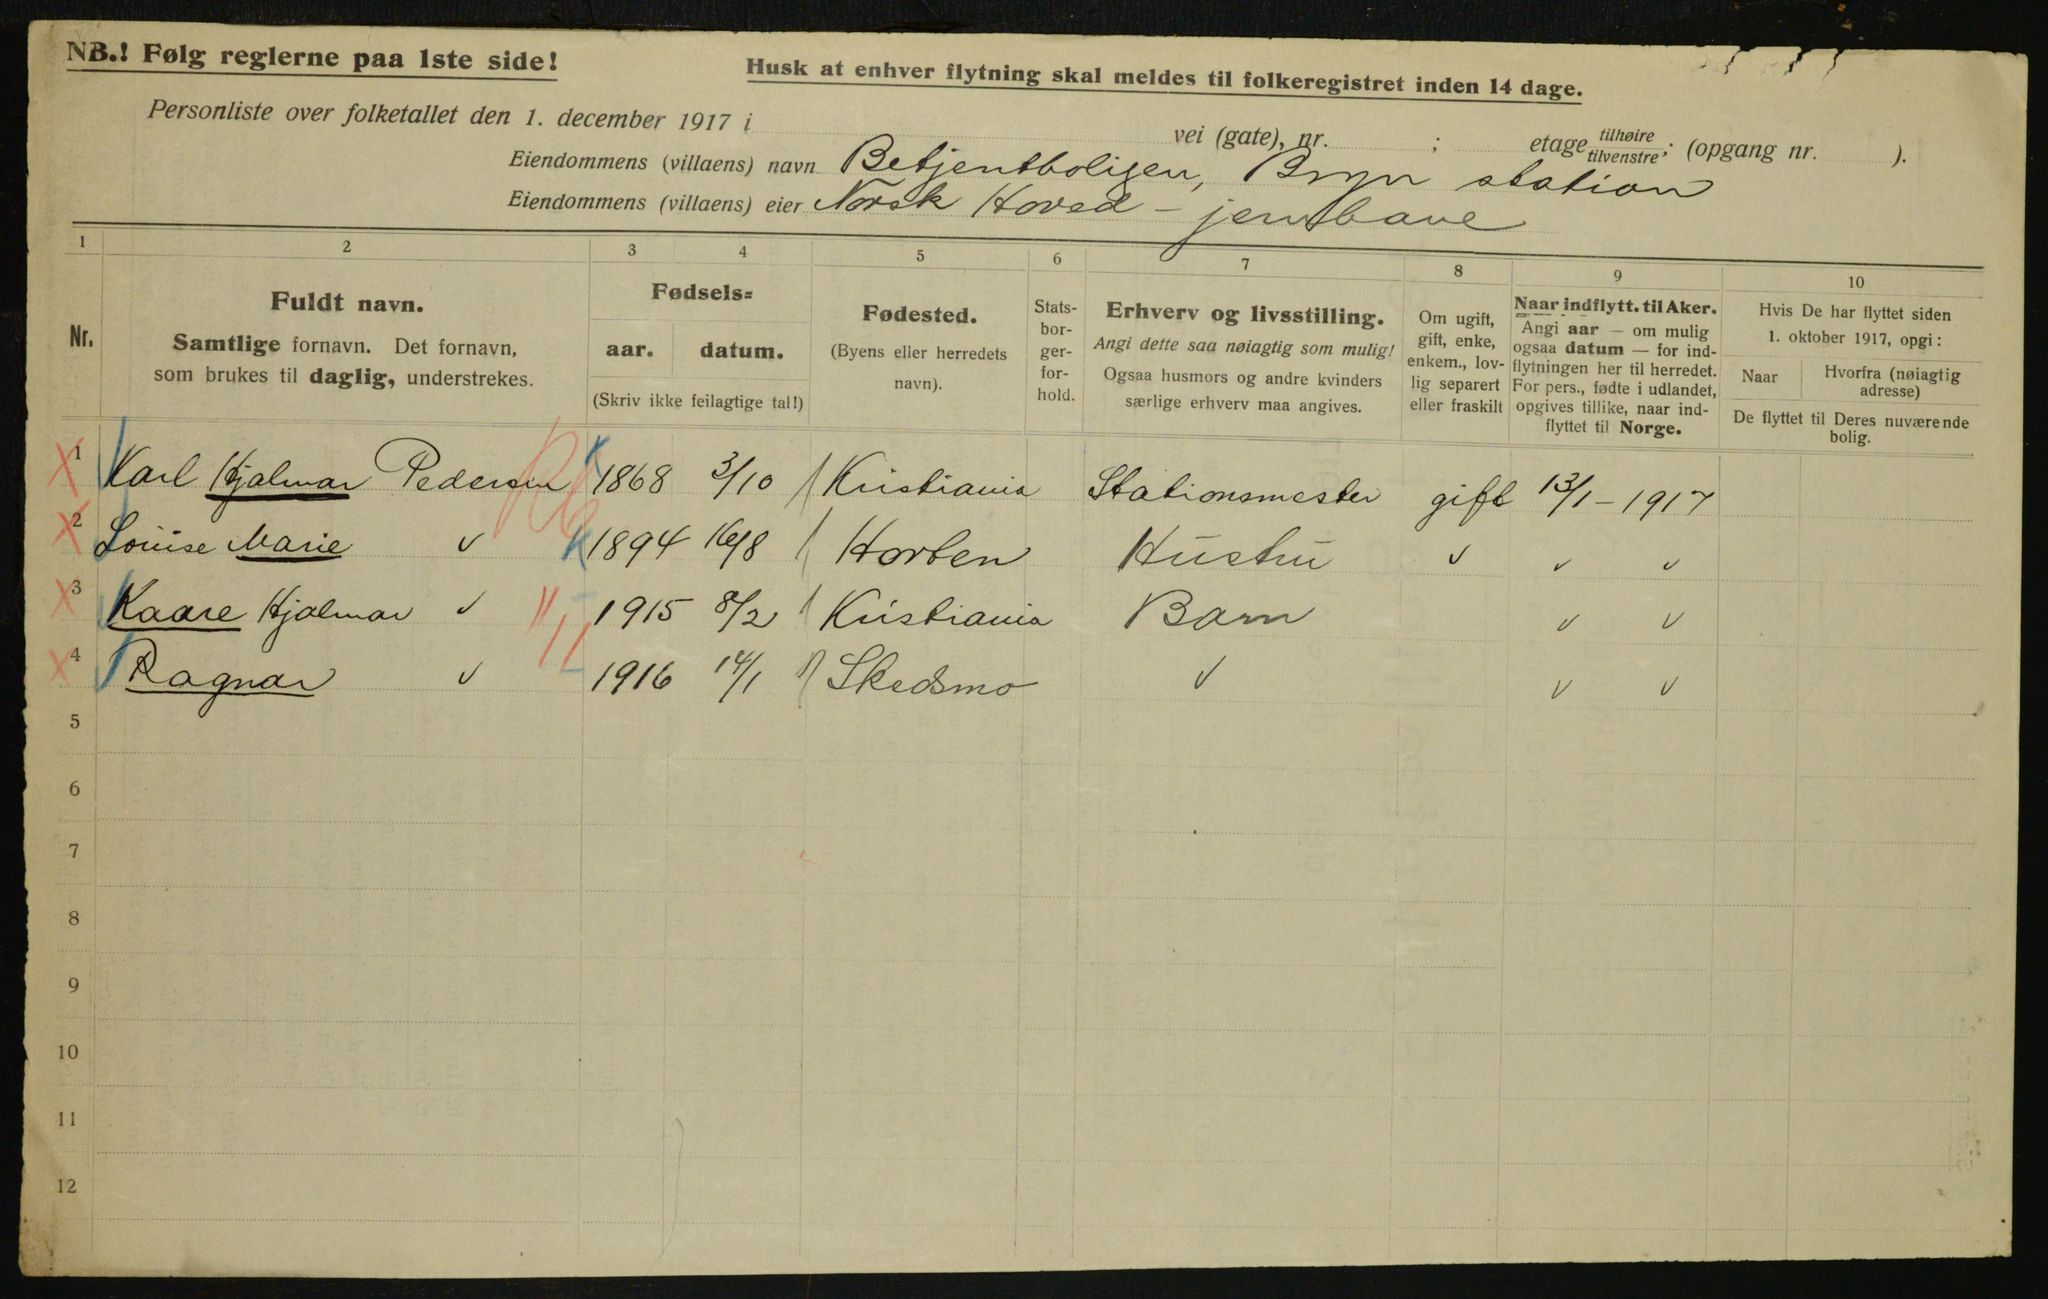 NB.! Følg reglerne paa 1ste side!
Husk at enhver flytning skal meldes til folkeregistret inden 14 dage.
Personliste over folketallet den 1. december 1917 i vei (gate), nr. ; etage tilhøire tilvenstre; (opgang nr. ).
Eiendommens (villaens) navn Betjentboligen, Bryn station
Eiendommens (villaens) eier Norsk Hoved-jernbane
1 2 3 4 5 6 7 8 9 10
Nr.
Fuldt navn.
Samtlige fornavn. Det fornavn,
som brukes til daglig, understrekes.
Fødsels=
aar. datum.
(Skriv ikke feilagtige tal!)
Fødested.
(Byens eller herredets
navn).
Stats-
bor-
ger-
for-
hold.
Erhverv og livsstilling.
Angi dette saa nøiagtig som mulig!
Ogsaa husmors og andre kvinders
særlige erhverv maa angives.
Om ugift,
gift, enke,
enkem., lov-
lig separert
eller fraskilt
Naar indflytt. til Aker.
Angi aar — om mulig
ogsaa datum — for ind-
flytningen her til herredet.
For pers., fødte i udlandet,
opgives tillike, naar ind-
flyttet til Norge.
Hvis De har flyttet siden
1. oktober 1917, opgi:
Naar Hvorfra (nøiagtig
adresse)
De flyttet til Deres nuværende
bolig.
1 Karl Hjalmar Pedersen K 1868 3/10 Kristiania Stationsmester gift 13/1 - 1917
2 Louise Marie v K 1894 16/8 Horten Hustru v v v
3 Kaare Hjalmar v 1915 8/2 Kristiania Barn v v
4 Ragnar v 1916 14/1 Skedsmo v v v
5
6
7
8
9
10
11
12